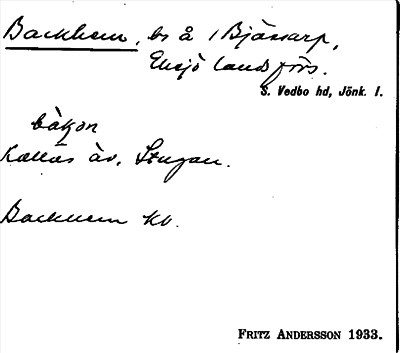 Backhem, bs å 1 Bjässarp,
Eksjö landsförs.
S. Vedbo hd, Jönk. l.
båkon
Kallas äv. Stugan.
Backhem kb.
FRITZ ANDERSSON 1933.